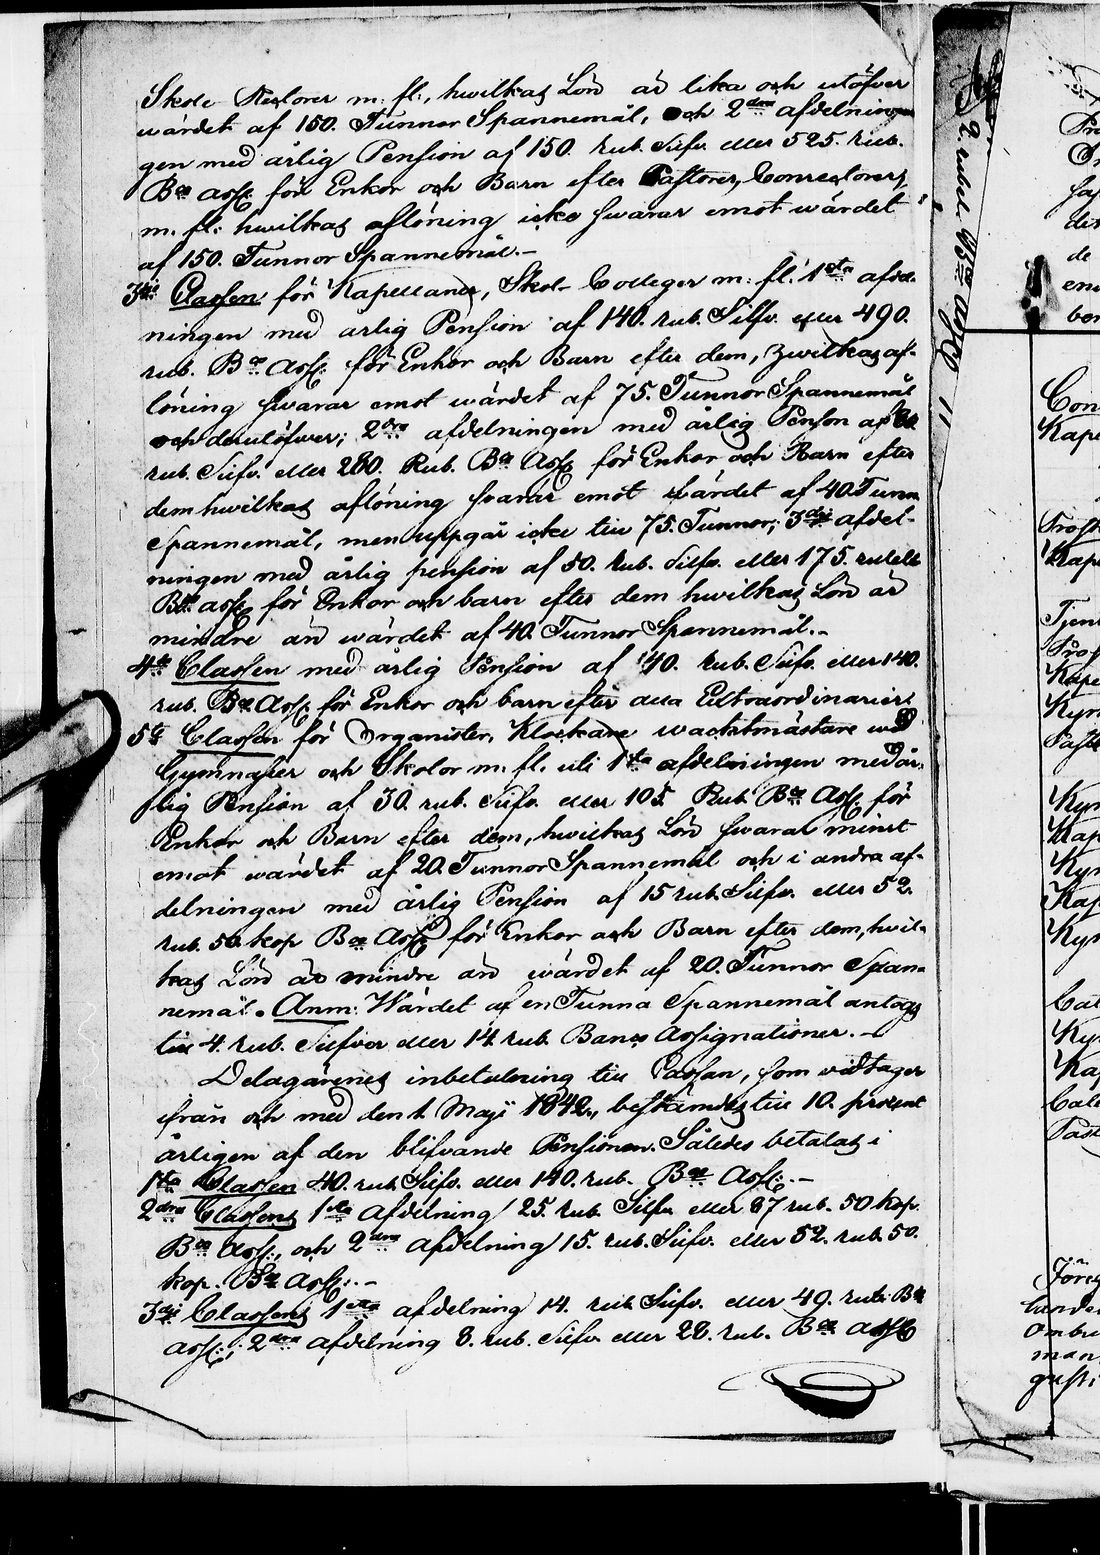 Skole Rectorer m: fl:, hwilkas Lön är lika och utöfver
wärdet af 150. Tunnor Spannemål, och 2dra afdelningen
gen med årlig Pension af 150. rub. Silfv. eller 525. rub.
Bco Assg. för Enkor och Barn efter Pastorer, Conrectorer,
m. fl: hwilkas aflöning icke swarar emot wärdet
af 150. Tunnor Spannemål.—
3die Classen för Kapellaner, Skol- Colleger m: fl: 1sta afdel-
ningen med årlig Pension af 140. rub. Silfv. eller 490.
rub. Bco Assg. för Enkor och Barn efter dem, hwilkas af-
löning swarar emot wärdet af 75. Tunnor Spannemål
och derutöfwer; 2dra afdelningen med årlig Pension af 80.
rub. Silfv. eller 280. Rub. Bco Assg för Enkor och Barn efter
dem hwilkas aflöning swarar emot wärdet af 40. Tunn.
Spannemål, men uppgår icke till 75. Tunnor; 3die afdel-
ningen med årlig pension af 50. rub. Silfv. eller 175. rubel
Bco assg för Enkor och barn efter dem hwilkas Lön är
mindre än wärdet af 40. Tunnor Spannemål.—
4de Classen med årlig Pension af 40. rub. Silfv. eller 140.
rub. Bco Assg. för Enkor och barn efter alla Extraordinarier.
5te Classen för Organister, Klockare wacktmästare wid
Gymnasier och Skolor m. fl. uti 1sta afdelningen med år-
lig Pension af 30. rub. Silfv. eller 105. Rub. Bco Assg. för
Enkor och Barn efter dem, hwilkas Lön swarar minst
emot wärdet af 20. Tunnor Spannemål och i andra af-
delningen med årlig Pension af 15 rub. Silfv. eller 52.
rub. 50 kop Bco Assg för Enkor och Barn efter dem, hwil-
kas Lön är mindre än wärdet af 20. Tunnor Span-
nemål. Anm: Wärdet af en Tunna Spannemål antages
till 4. rub. Silfver eller 14 rub. Banco Assignationer.—
Delägarenes inbetalning till Cassan, som widtager
från och med den 1. Maji 1842., bestämdes till 10. procent
årligen af den blifvande Pensionen. Således betalas i
1sta Classen 40. rub. Silfv. eller 140. rub. Bco Assg.—
2dra Classens 1sta afdelning 25. rub. Silfv. eller 87 rub. 50 kop.
Bco Assg., och 2dra afdelning 15. rub. Silfv. eller 52. rub. 50.
kop. Bco Assg.—
3die Classens 1sta afdelning 14. rub. Silfv. eller 49. rub. Bco
assg.; 2dra afdelning 8. rub. Silfv. eller 28. rub. Bco assg